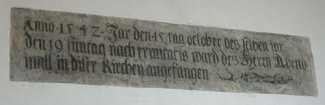 Anno 1542 Jar den 15 tag october des selben jor
den 19 suntag nach trinitatis ward des Herrn Abent
mall in diser Kirchen angefangen